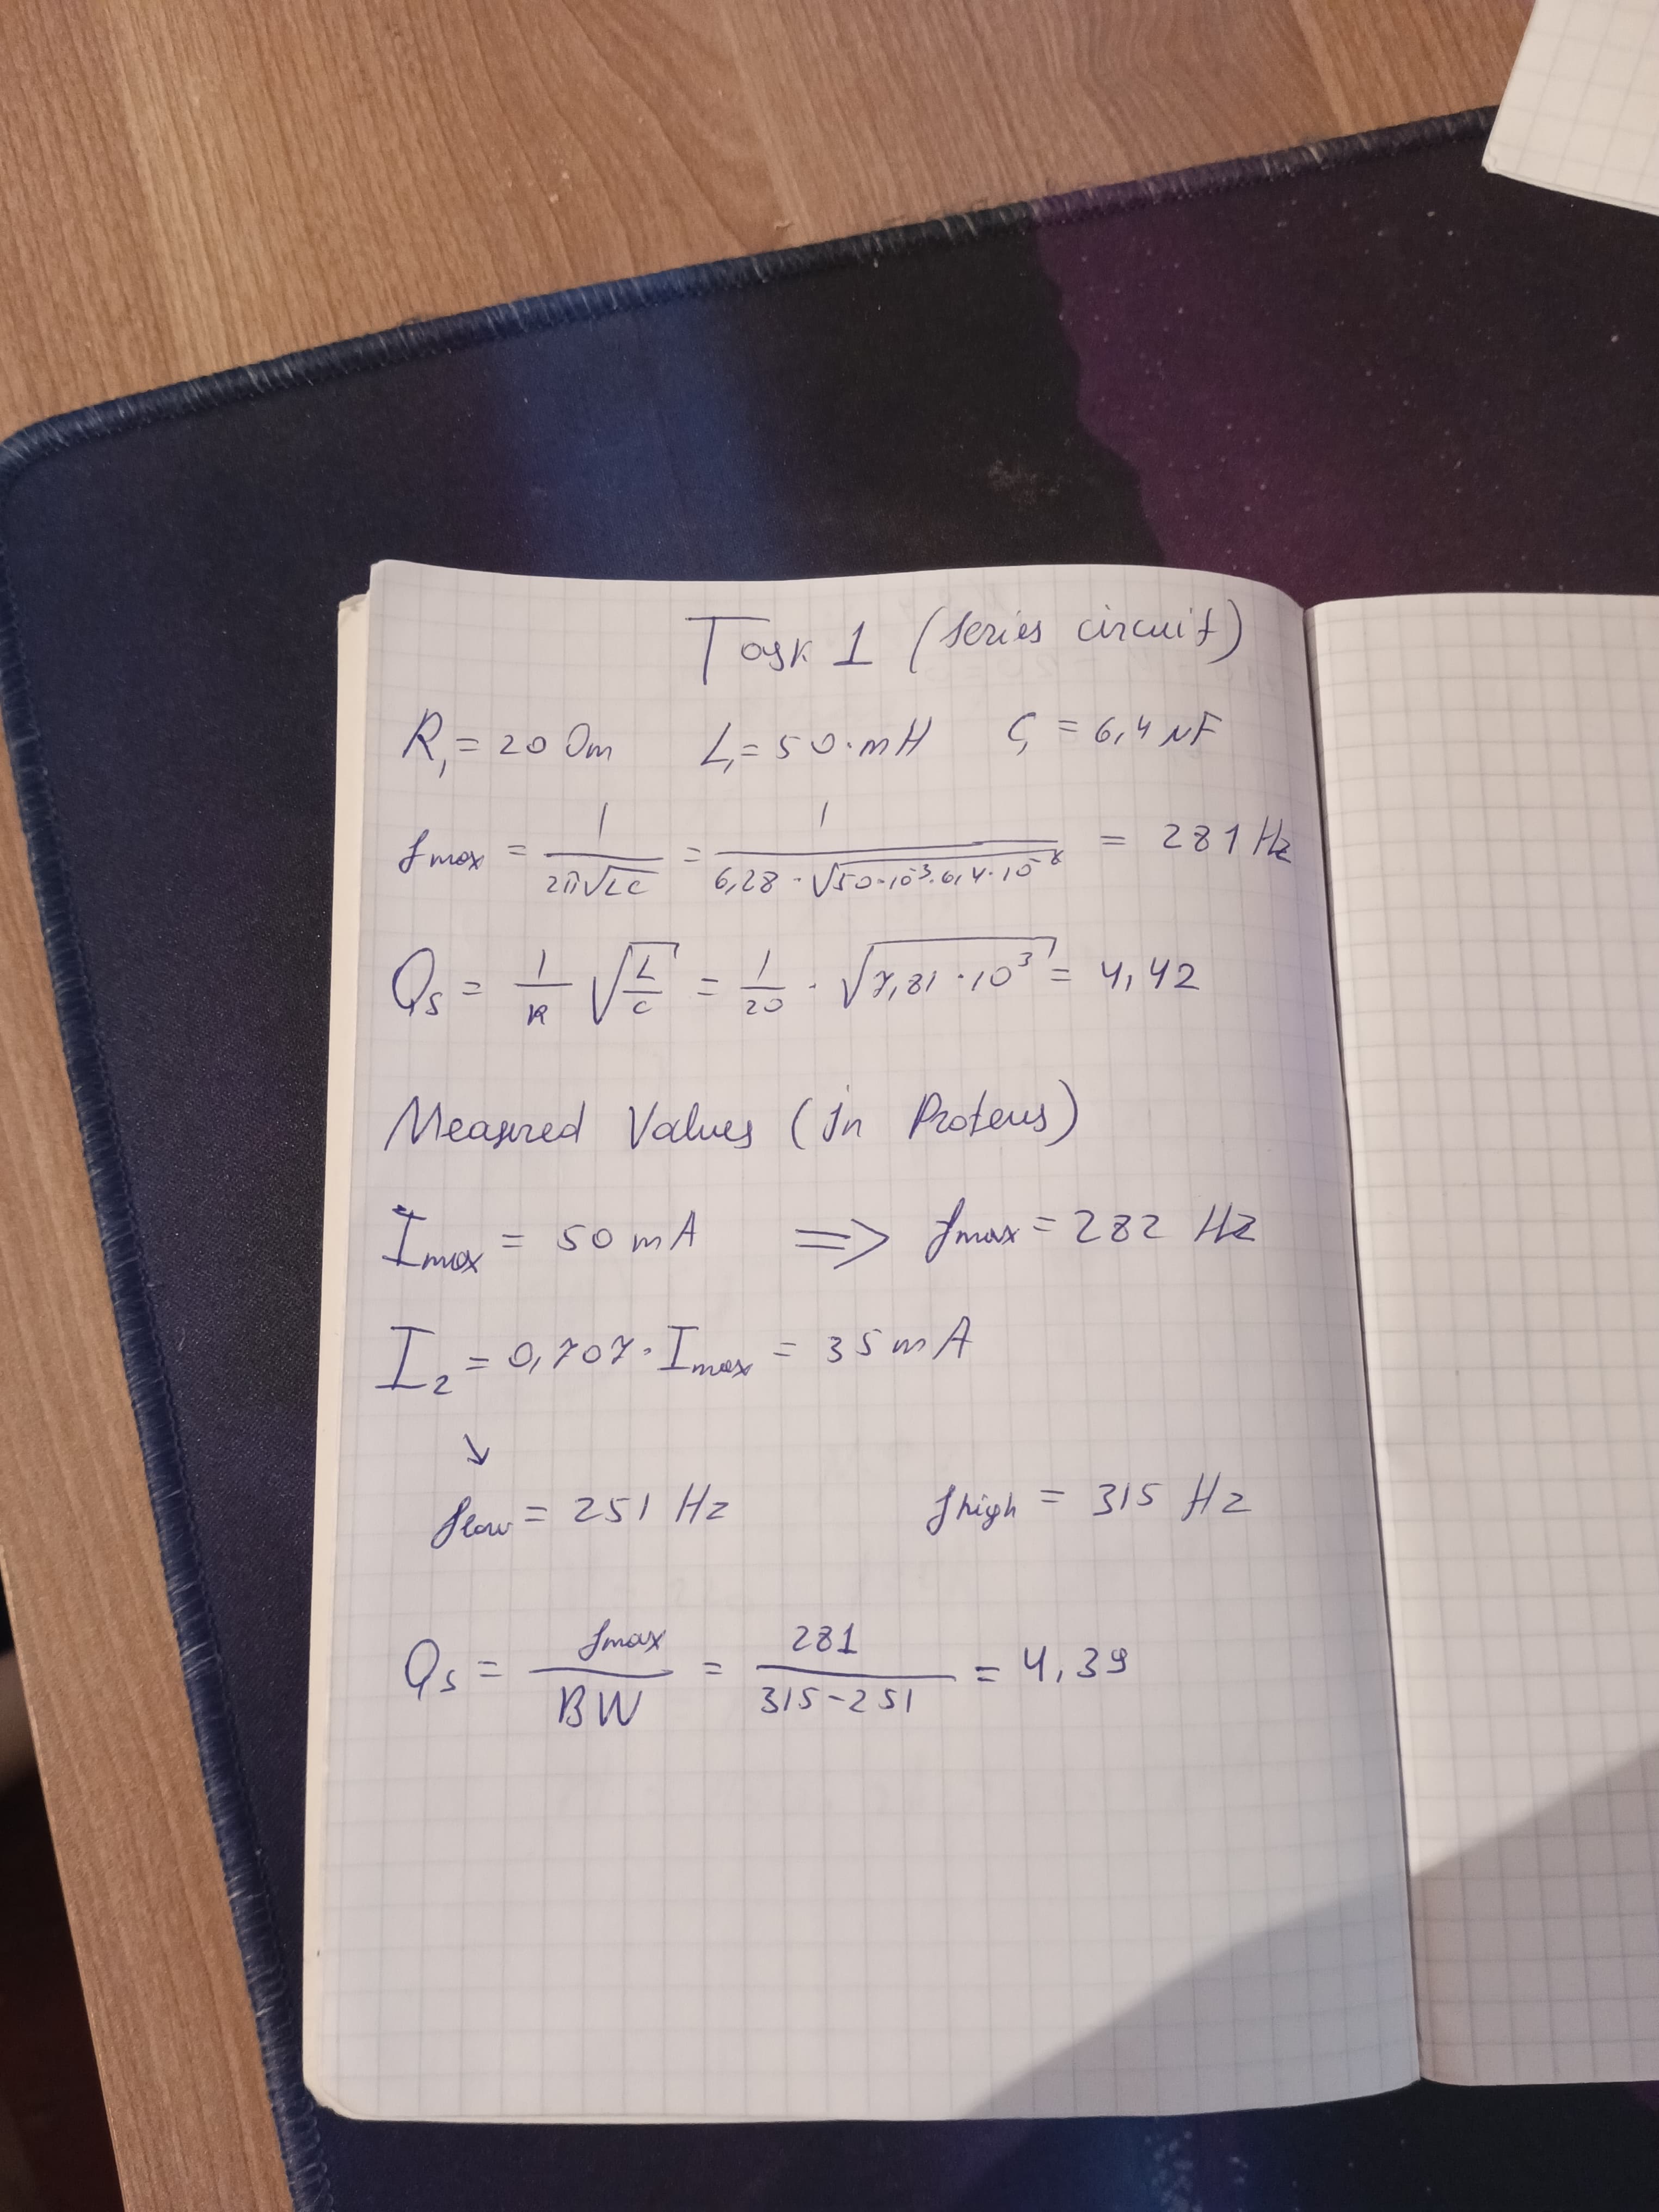 Task 1 (series circuit)
R₁ = 20 Om L₁ = 50·mH C₁ = 6,4 μF
fmax = 1/(2π√LC) = 1/(6,28 · √50·10⁻³·6,4·10⁻⁶) = 281 Hz
Qs = 1/R √(L/C) = 1/20 · √7,81·10³ = 4,42
Measured Values (in Proteus)
Imax = 50 mA => fmax = 282 Hz
I₂ = 0,707·Imax = 35 mA
↘
flow = 251 Hz fhigh = 315 Hz
Qs = fmax/BW = 281/(315-251) = 4,39